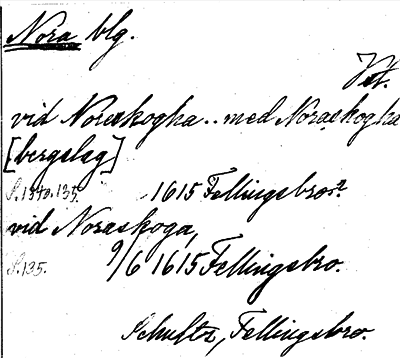 Nora blg.
Vstm.
vid Noraskogha.. med Noraskogha
[bergslag]
1615 Fellingsbro
vid Noraskoga,
S. 135. 9/6 1615 Fellingsbro.
Schultz, Fellingsbro.